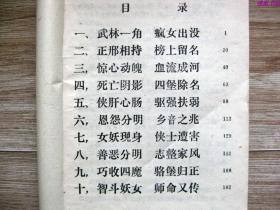 目 录
一、武林一角 疯女出没 1
二、正邪相持 榜上留名 20
三、惊心动魄 血流成河 40
四、死亡阴影 四堡除名 63
五、侠肝心肠 驱强扶弱 88
六、恩怨分明 乡音之我 113
七、女妖现身 侠士遭害 129
八、善恶分明 志悠家风 152
九、巧收四魔 骆堡归正
十、智斗妖女 师命又传 182